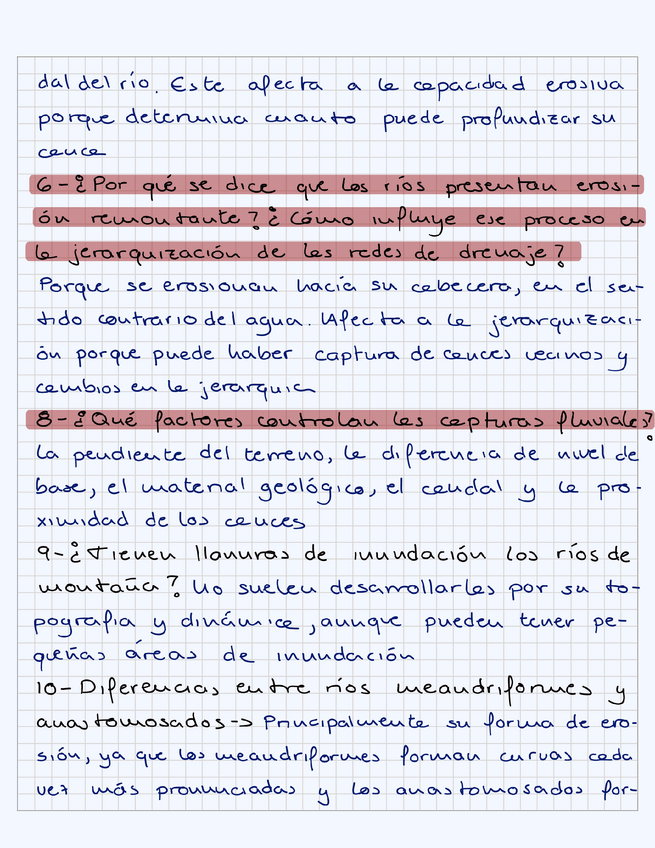 dal del río. Este afecta a la capacidad erosiva
porque determina cuanto puede profundizar su
cauce
6-¿Por qué se dice que los ríos presentan erosi-
ón remontante? ¿Cómo influye ese proceso en
la jerarquización de las redes de drenaje?
Porque se erosionan hacía su cabecera, en el sen-
tido contrario del agua. Afecta a la jerarquizaci-
ón porque puede haber captura de cauces vecinos y
cambios en la jerarquía
8-¿Qué factores controlan las capturas fluviales?
La pendiente del terreno, la diferencia de nivel de
base, el material geológico, el caudal y la pro-
ximidad de los cauces
9-¿Tienen llanuras de inundación los ríos de
montaña? No suelen desarrollarlas por su to-
pografía y dinámica, aunque pueden tener pe-
queñas áreas de inundación
10-Diferencias entre ríos meandriformes y
anastomosados-> Principalmente su forma de ero-
sión, ya que los meandriformes forman curvas cada
vez más pronunciadas y los anastomosados for-